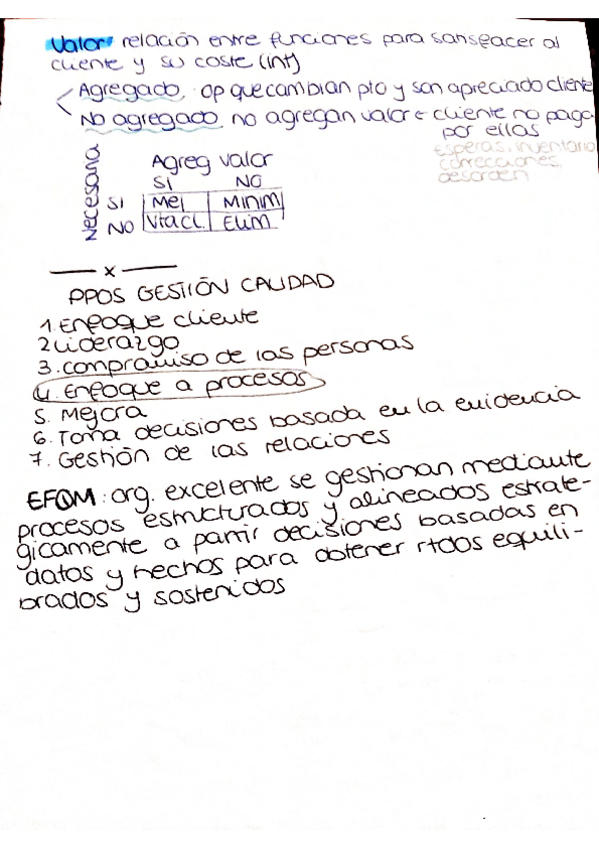 Valor relación entre funciones para satisfacer al
cliente y su coste (int)
Agregado op que cambian pto y son apreciado cliente
No agregado no agregan valor cliente no paga
por ellas
esperas, inventario
correcciones,
desorden
Necesaria
Agreg valor
SI NO
SI Mej Minim
NO Vta cl. Elim
x
PPOS GESTIÓN CALIDAD
1. Enfoque cliente
2 Liderazgo
3. compromiso de las personas
4. Enfoque a procesos
5. Mejora
6. Toma decisiones basada en la evidencia
7. Gestión de las relaciones
EFQM: org. excelente se gestionan mediante
procesos estructurados y alineados estraté-
gicamente a partir decisiones basadas en
datos y hechos para obtener rtdos equili-
brados y sostenidos